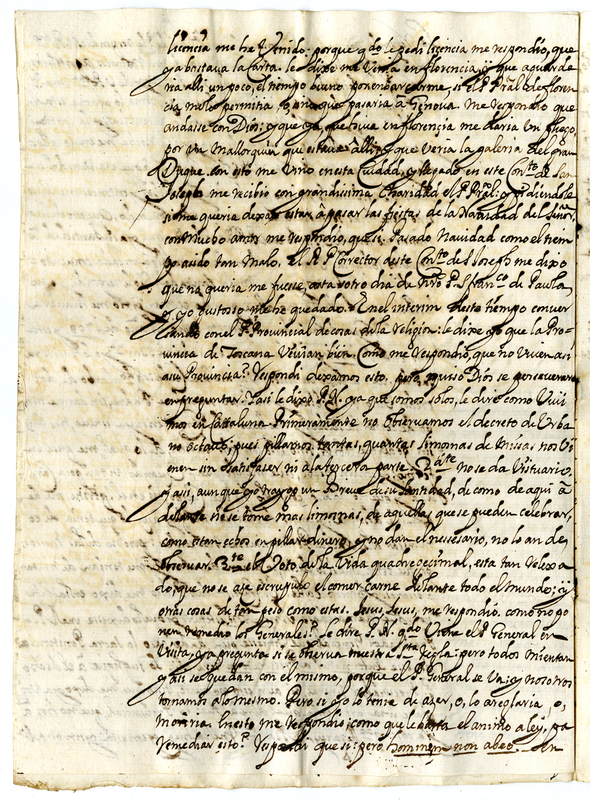 licencia me he venido. porque qdo le pedi licencia me respondio, que
ya bastava la Carta. le dixe me venia en florencia, y que aguarda
ria alli un poco, el tiempo bueno por embarcarme, si el P. Pral de floren
cia me lo permitia o, no que pasaria a Genova. Me respondio que
andase con Dios; y que ya que estava en florencia me daria un pliego
por un Mallorquin que estava alli, y que veria la galeria del gran
Duque. con esto me vine en esta Ciudad, y llegado en este Conto de San
Joseph me recibio con grandissima Charidad el P. Pral: y pidiendole
si me queria dexar estar à pasar las fiestas de la Navidad del Señor,
con mucho amor me respondio, que si. Pasado Navidad como el tiem
po asido tan malo, el R. P. Corrector deste Conto de S. Joseph me dixo
que no queria me fuesse, asta otro dia de Nro P. S. Franco de Paula,
y yo gustoso me he quedado. En el interim deste tiempo conver
sando con el P. Provincial de cosas de la Religion. le dixe yo que la Pro-
vincia de Toscana Vivian bien. Como me respondio, que no viven asi
a su Provincia? Respondi dexamos esto. pero, quiso Dios se perseverara
en preguntar. Y asi le dixe P. N. ya que somos solos, le dire como vivi
mos en Cattaluña. Primeramente no observamos el decreto de Urba
no octavo, pues pillamos tantas, quantas limonas de Missas nos vi
enen sin satisfacer ni a la tercera parte. 2a te no se da Vistuario,
y asi, aunque yo traygo un Breve de su Santidad, de como de aqui a
delante no se tome mas limonas, de aquellas que se pueden celebrar,
como estan echos en pillar dinero, y no dan el nessesario, no lo an de
observar. 3a te el Voto de la Vida quadragecimal, esta tan relexa
do, que no se aze escrupulo el comer carne delante todo el mundo; y
otras cosas de tan peso como estas. Jesus, Jesus, me respondio. como no po
nen remedio los Generales? le dire P. N. qdo viene el P. General en
Visita, ya pregunta si se observa nuestra Sta Regla: pero todos mientan
y asi se quedan con el mismo, porque el P. General se va; y nosotros
tornamos a lo mesmo. Pero si yo lo tenia de azer, o, lo areglaria o,
moriria. En esto me respondio; como que le basta el animo a ley, pa
remediar esto? Respondi que si: pero hominem non abeo. Un